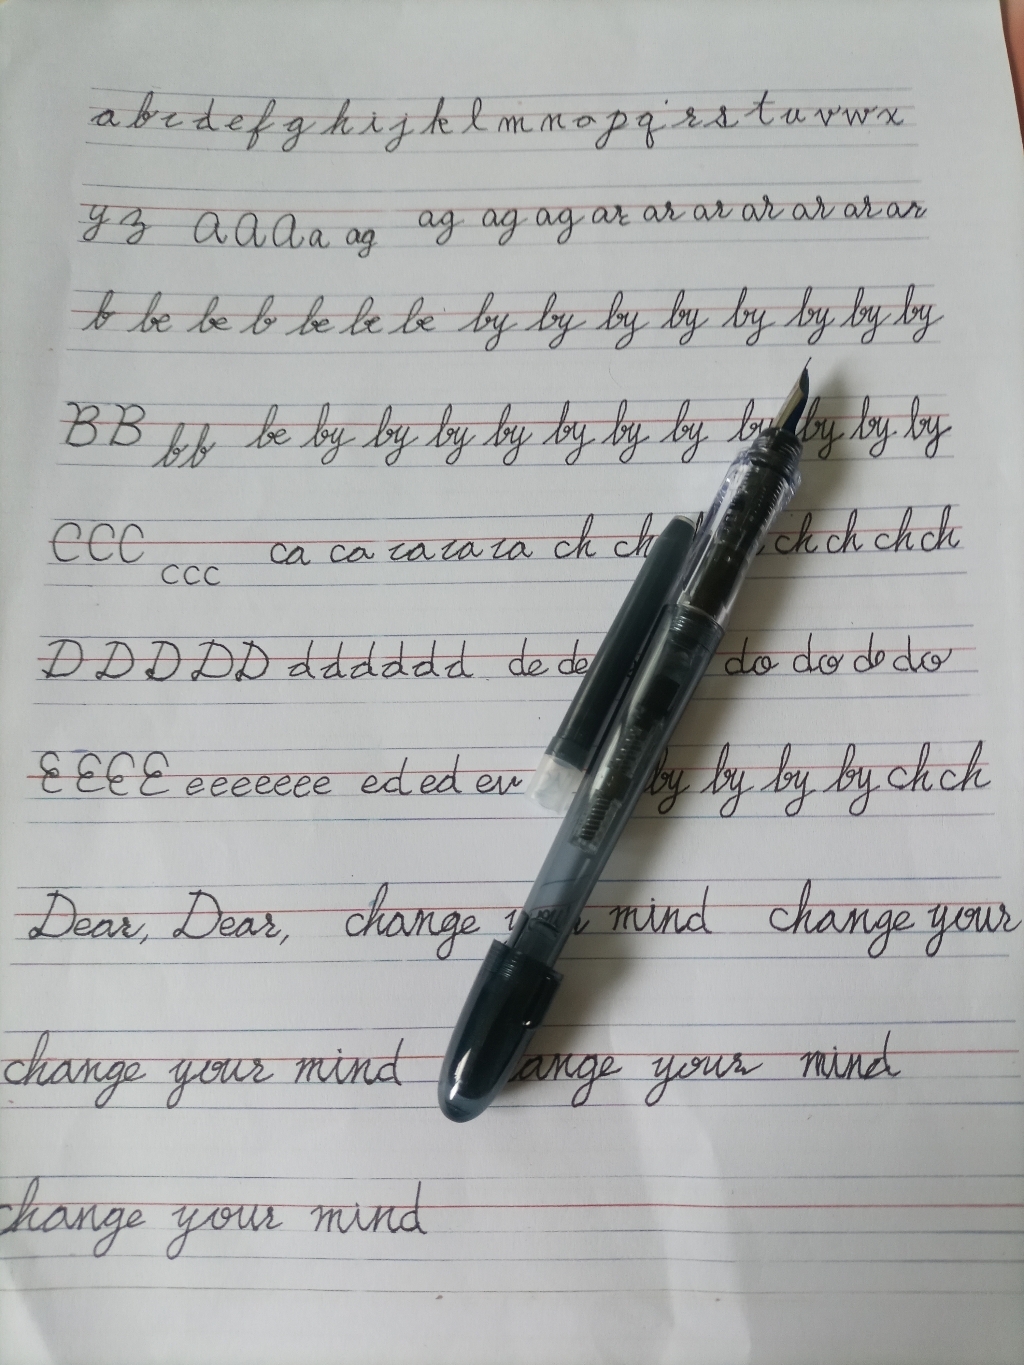 a b c d e f g h i j k l m n o p q r s t u v w x
y z a a a a ag ag ag ag ar ar ar ar ar ar ar
b be be b be be be by by by by by by by by
B B b b be by by by by by by by by by by by
C C C c c c ca ca ca ca ca ch ch ch ch ch ch
D D D D D d d d d d d de de do do do do
E E E E e e e e e e e ed ed er by by by by ch ch
Dear, Dear, change your mind change your
change your mind change your mind
change your mind